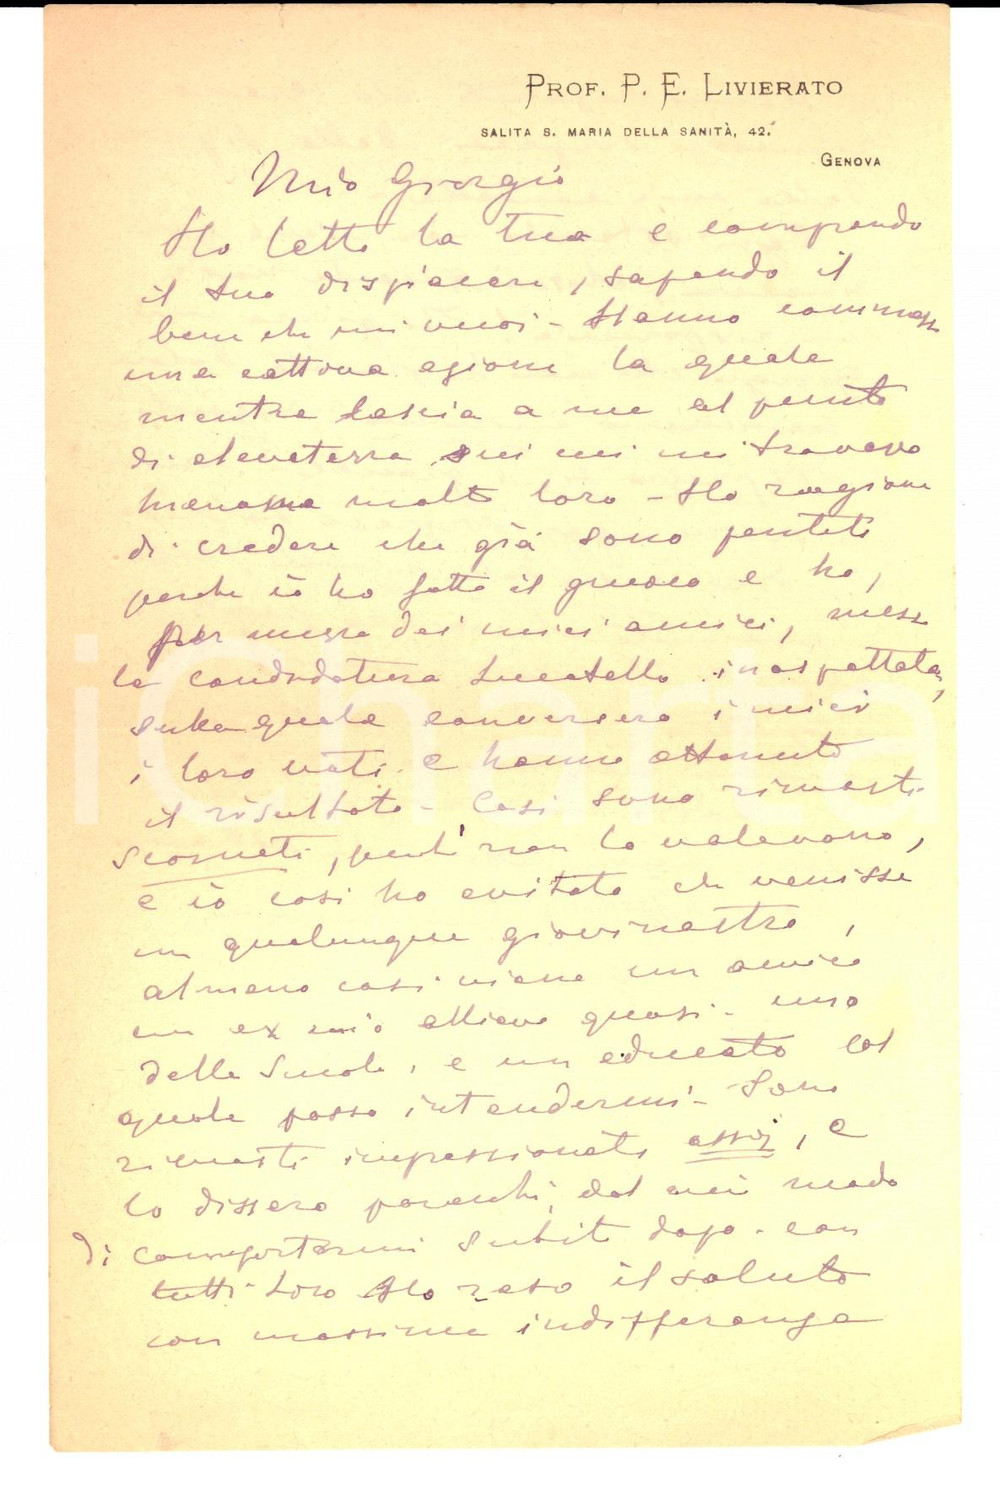 PROF. P. E. LIVIERATO
SALITA S. MARIA DELLA SANITÀ, 42.
GENOVA
Mio Giorgio
Ho letto la tua e comprendo
il tuo dispiacere, sapendo il
bene che mi vuoi - Hanno commesso
una cattiva azione la quale
mentre lascia a me al punto
di elevatezza in cui mi trovavo
menoma molto loro - Ho ragione
di credere che già sono pentiti
perché io ho fatto il giuoco e ho,
per mezzo dei miei amici, messo
la candidatura Lucatello inaspettata,
sulla quale conversero i miei
i loro voti e hanno ottenuto
il risultato - Così sono rimasti
scornati, perché non lo volevano,
e io così ho evitato che venisse
un qualunque giovinastro,
almeno così viene un amico
un ex mio allievo quasi - uno
della Scuola, e un educato col
quale posso intendermi - Sono
rimasti impressionati assai, e
lo dissero parecchi, dal mio modo
di comportarmi subito dopo - con
tutti loro Ho reso il saluto
con massima indifferenza
iCharta